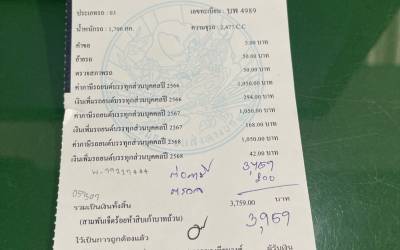 ประเภทรถ : 03 เลขทะเบียน : บพ 4989
น้ำหนักรถ : 1,700 กก. ความจุรถ : 2,477 C.C
ค่าขอ 5.00 บาท
ย้ายรถ 50.00 บาท
ตรวจสภาพรถ 50.00 บาท
ค่าภาษีรถยนต์บรรทุกส่วนบุคคลปี 2566 1,050.00 บาท
เงินเพิ่มรถยนต์บรรทุกส่วนบุคคลปี 2566 294.00 บาท
ค่าภาษีรถยนต์บรรทุกส่วนบุคคลปี 2567 1,050.00 บาท
เงินเพิ่มรถยนต์บรรทุกส่วนบุคคลปี 2567 168.00 บาท
ค่าภาษีรถยนต์บรรทุกส่วนบุคคลปี 2568 1,050.00 บาท
เงินเพิ่มรถยนต์บรรทุกส่วนบุคคลปี 2568 42.00 บาท
ต่อภาษี 3,759
ตรวจ 200
รวมเป็นเงินทั้งสิ้น 3,759.00 บาท
(สามพันเจ็ดร้อยห้าสิบเก้าบาทถ้วน) 3,959
ไว้เป็นการถูกต้องแล้ว
ผู้รับเงิน